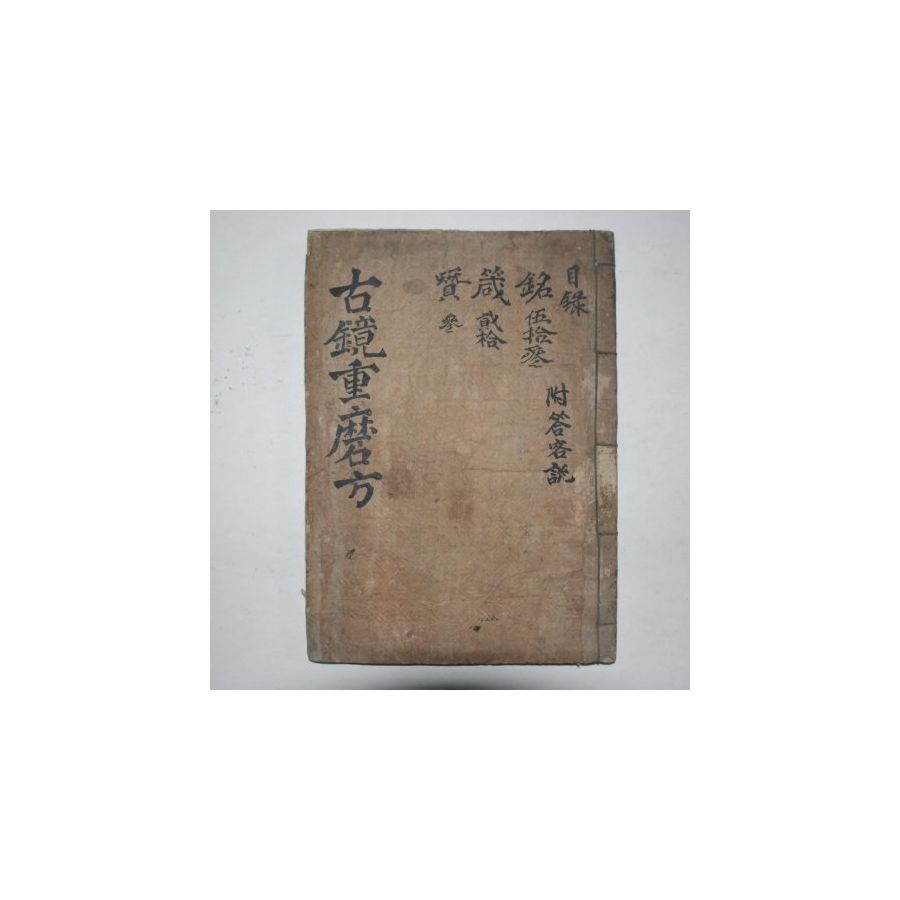 目錄
銘 伍拾叅
附答客訛
箴 貳拾
贊 叅
古鏡重磨方